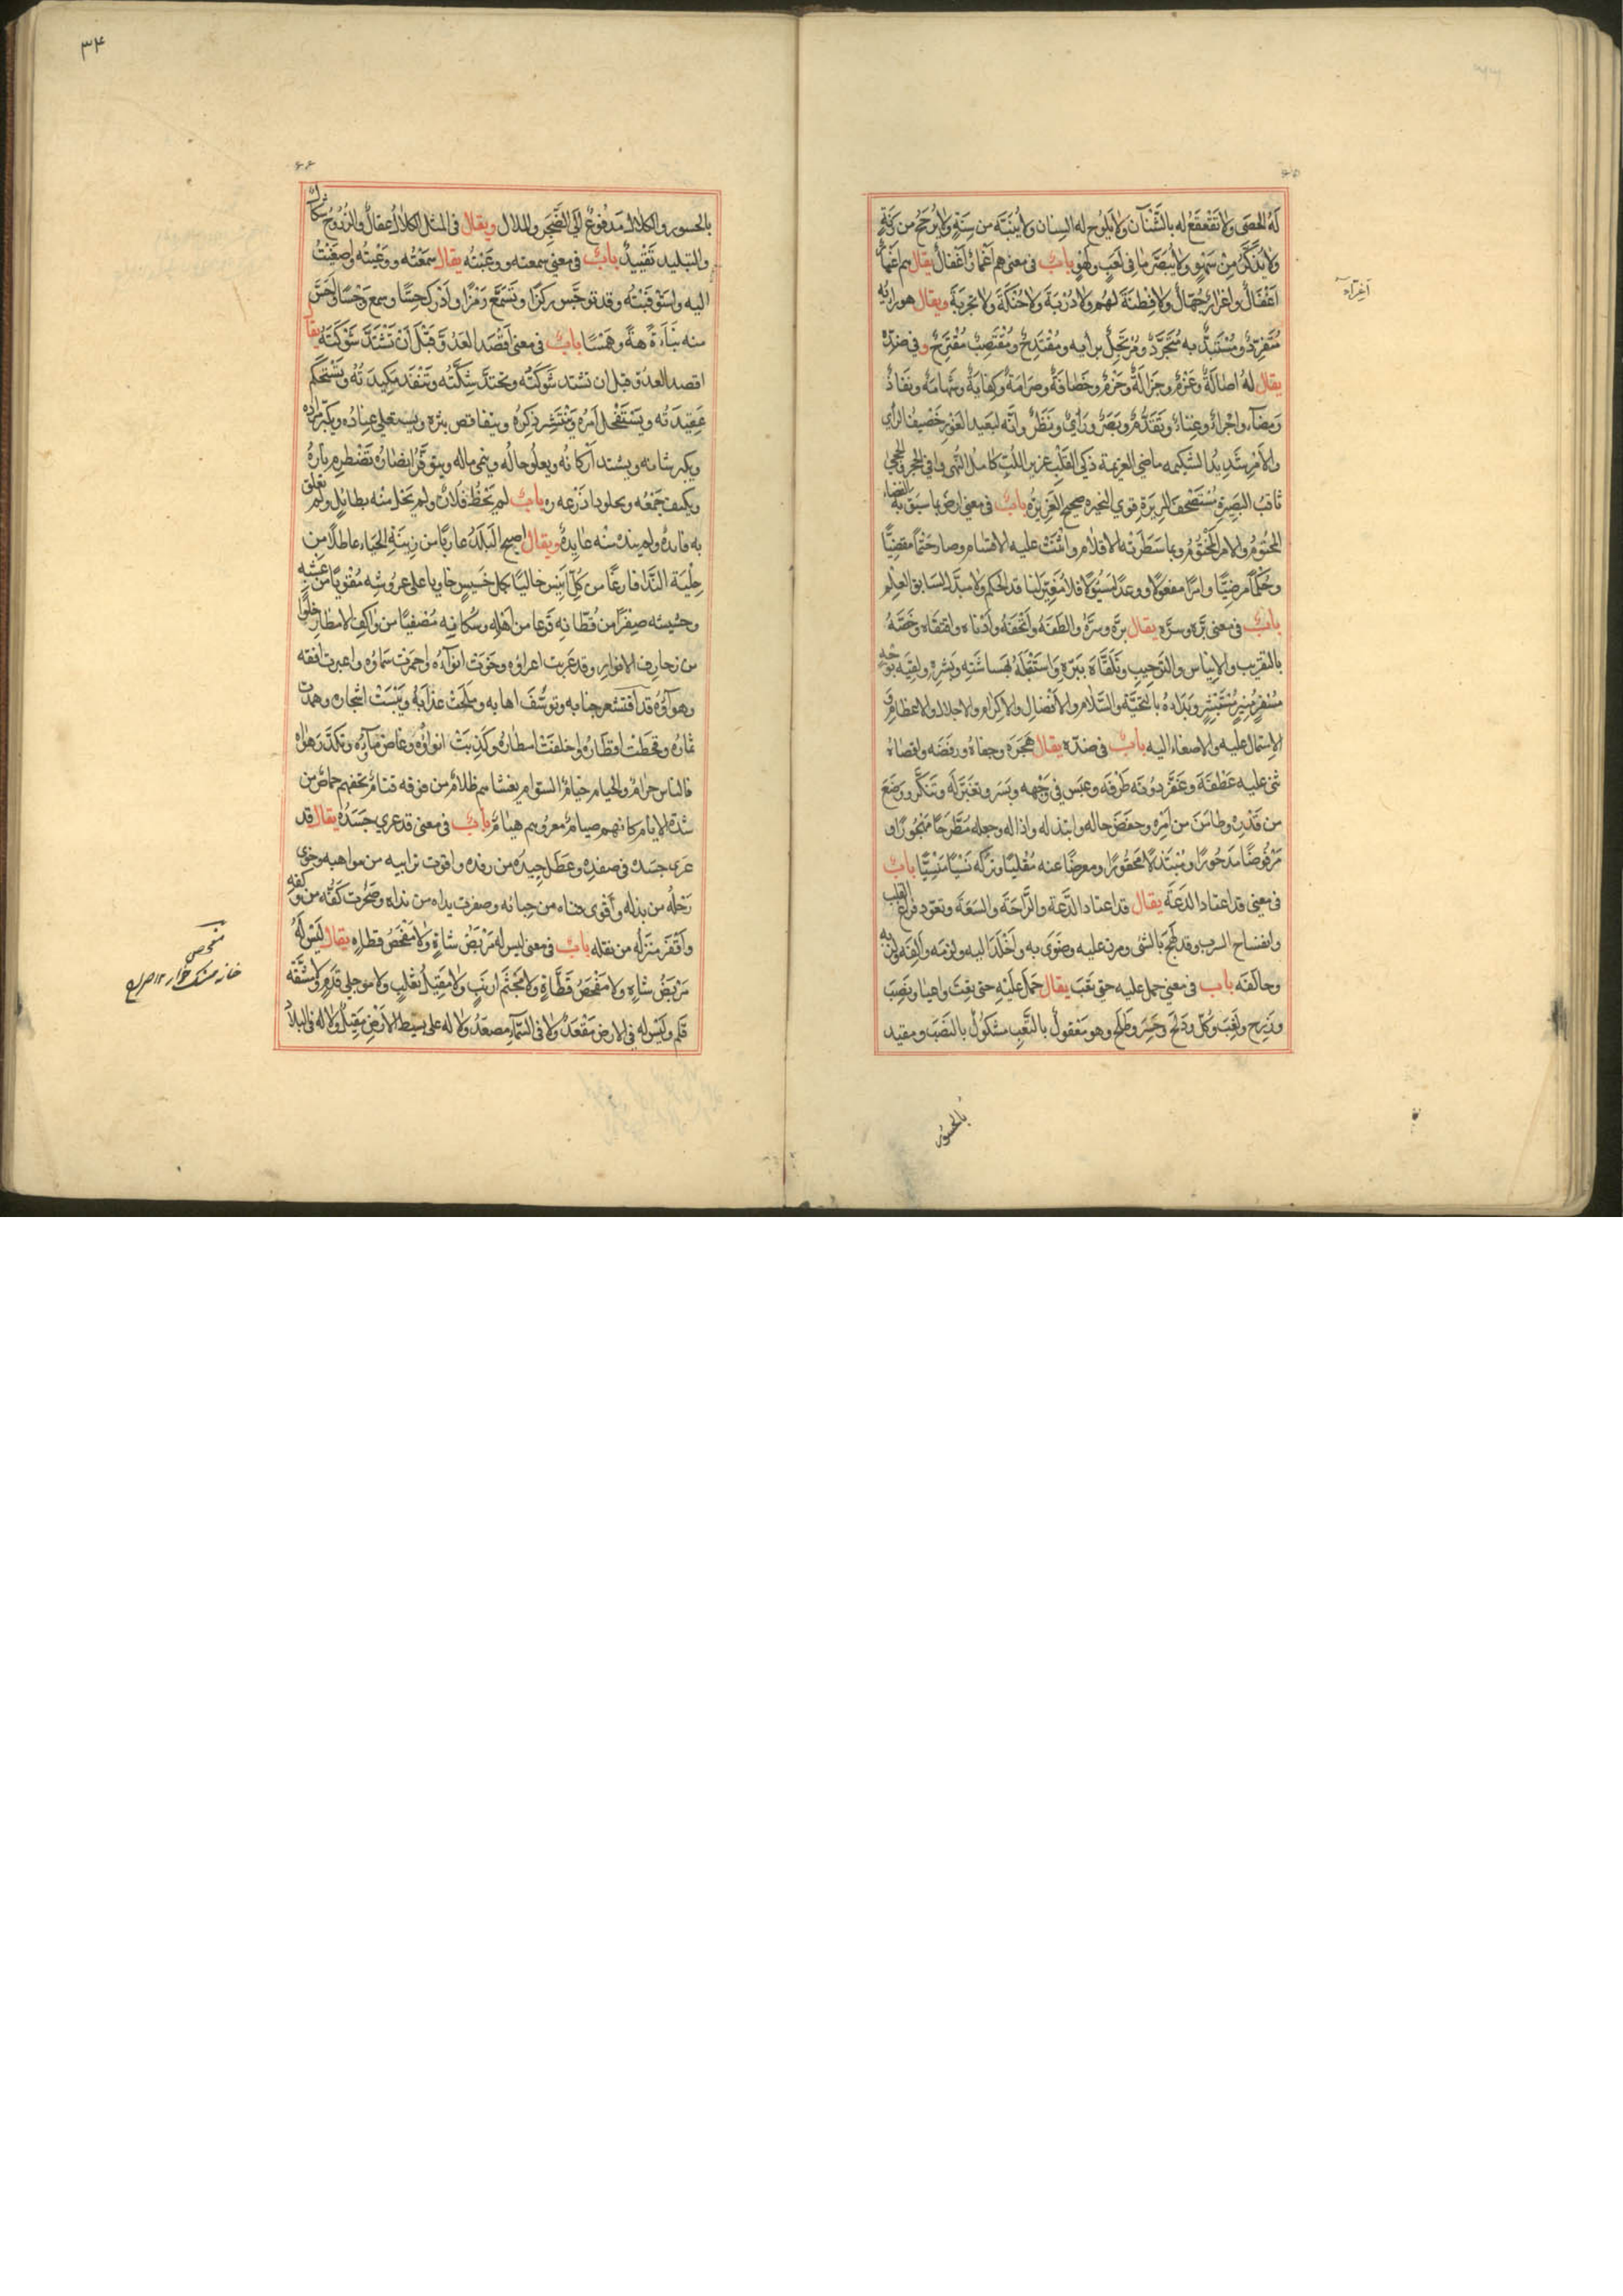 ۳۴
له الحصى ولا تقعقع له بالشنآن ولا يلوح له السنان ولا ينبته من سنة ولا يرجح من
ولا يذكر من سهو ولا يبصر ما في لعب ولهو باب في معنى هم أغمار أغفال يقال هم أغمار
أغفال وأغرار جهال ولا فطنة لهم ولا دربة ولا حنكة ولا تجربة ويقال هو برأيه
متفرد ومستبد به متجرد ومرتجل برأيه ومقتدح ومقتضب مقترح وفي ضده
يقال له أصالة وعزم وجزالة وحزم وحصافة وصرامة وكفاية وشهامة ونفاذ
ومضاء وإجراء وعناء وتقدم وبصر ورأي ونظر وإنه لبعيد الغور حصيف الرأي
والأمر شديد الشكيمة ماضي العزيمة ذكي القلب عزيز اللب كامل النهى وافي الحجر والحجى
ثاقب البصيرة مستحصف المريرة قوي النحيزة صحيح الغريزة باب في معنى ارض بما سبق به القضاء
المحتوم والأمر المختوم وبما سطرته الأقلام واثنت عليه الاقسام وصار حتما مقضيا
وحكما مرضيا وامرا مفعولا ووعدا مسئولا فلا مغير لنا قد الحكم ولا مبدل لسابق العلم
باب في معنى بره وسره يقال بره وسره والطفه وأتحفه وأدناه واقتفاه وخصه
بالتقريب والإيناس والترحيب وتلقاه ببره واستقبله بهشاشته وبشره ولقيه بوجه
مسفر منير مستبشر وبدأه بالتحية والسلام والأفضال والإكرام والاجلال والاعظام و
الاشتمال عليه والاصغاء اليه باب في ضده يقال هجره وجفاه ورفضه واقصاه
ثنى عليه عطفه وغض دونه طرفه وعبس في وجهه وبسر وتغير له وتنكر ووضع
من قدره وطامن من أمره وخفض حاله وابتذله واذاله وجعله مطرحا مهجورا و
مرفوضا مدحورا ومبتذلا محقورا ومعرضا عنه مقليا وتركه نسيا منسيا باب
في معنى قد اعتاد الدعة يقال قد اعتاد الدعة والراحة والسعة وتعود فراغ القلب
وانفساح السرب وقد لهج بالشئ ومرن عليه وضوي به وأخلد اليه ولزمه وألفه ولزن به
وحالفه باب في معنى حمل عليه حتى تعب يقال حمل عليه حتى تعب واعيا ونصب
ورزح ولغب وكل ودلح وحسر وطلح وهو معقول بالتعب مشكول بالنصب ومقيد
بالحسور
بالحسور والكلال مدفوع الى الضجر والملال ويقال في المثل الكلال عقال والرزوح شكال
والتبليد تقييد باب في معنى سمعته ووعيته يقال سمعته ووعيته واصغيت
اليه واستوقفته وقد توجس ركزا وتسمع رمزا وادرك حسا وسمع وجسا واحس
منه نبأة همة وهمسا باب في معنى اقصد العدو قبل ان تشتد شوكته يقال
اقصد العدو قبل ان تشتد شوكته وتحتد شكته وتنفد مكيدته وتستحكم
عقيدته ويستفحل امره وينتشر ذكره ويتفاقص بثره ويستعلي عناده ويكبر مراده
ويكبر شانه ويشتد اركانه ويعلو حاله وينمي ماله ويتوفر انصاره تضطرم ناره
ويكثف جمعه باب لم يحظ فلان ولم يحل منه بطائل ولم تعلق
به فائدة ولم يبده منه عايدة ويقال اصبح البلد عاريا من زينة الحياء عاطلا من
حلية الندا فارغا من كل انيس خاليا كل خسيس خاويا على عروشه مقويا من عشبه
وحشيشه صفرا من قطانه قرعا من أهله وسكانه من واكف الأمطار خلوا
من زخارف الانوار وقد عريت اعراؤه وخوت انوآءه واحمرت سماؤه واغبرت أفقه
وهوآؤه قد اقشعر جنابه وتوسف اهابه وملحت عذابه ويبست اشجاره وهمدت
ثماره وقحطت اقطاره واخلفت امطاره وكذبت انواؤه وغاض مآؤه وتكدر هواه
فالناس حرام والخيام خيام السوام يغشاهم ظلام من فوقه قتام تحفهم خماص من
شدة الايام كانهم صيام معروهم هيام باب في معنى قد عري جسده يقال قد
عرى جسده في صفده وعطل جيده من رفده واقوت ترابيه من مواهبه وخوى
رحله من بذله وأقوى فناه من حبائه وصفرت يداه من نداه وضجرت كفه من وكفه
واقفر منزله من نقله باب في معنى ليس له مربض شاة ولا مفحص قطاة يقال ليس له
مربض شاة ولا مفحص قطاة ولا مجثم ارنب ولا مقيل ثعلب ولا موجلي قدم ولا مشقة
قلم وليس له في الارض مقعد ولا في السماء مصعد ولا له على بسيط الأرض مقيل ولا له في البلاد